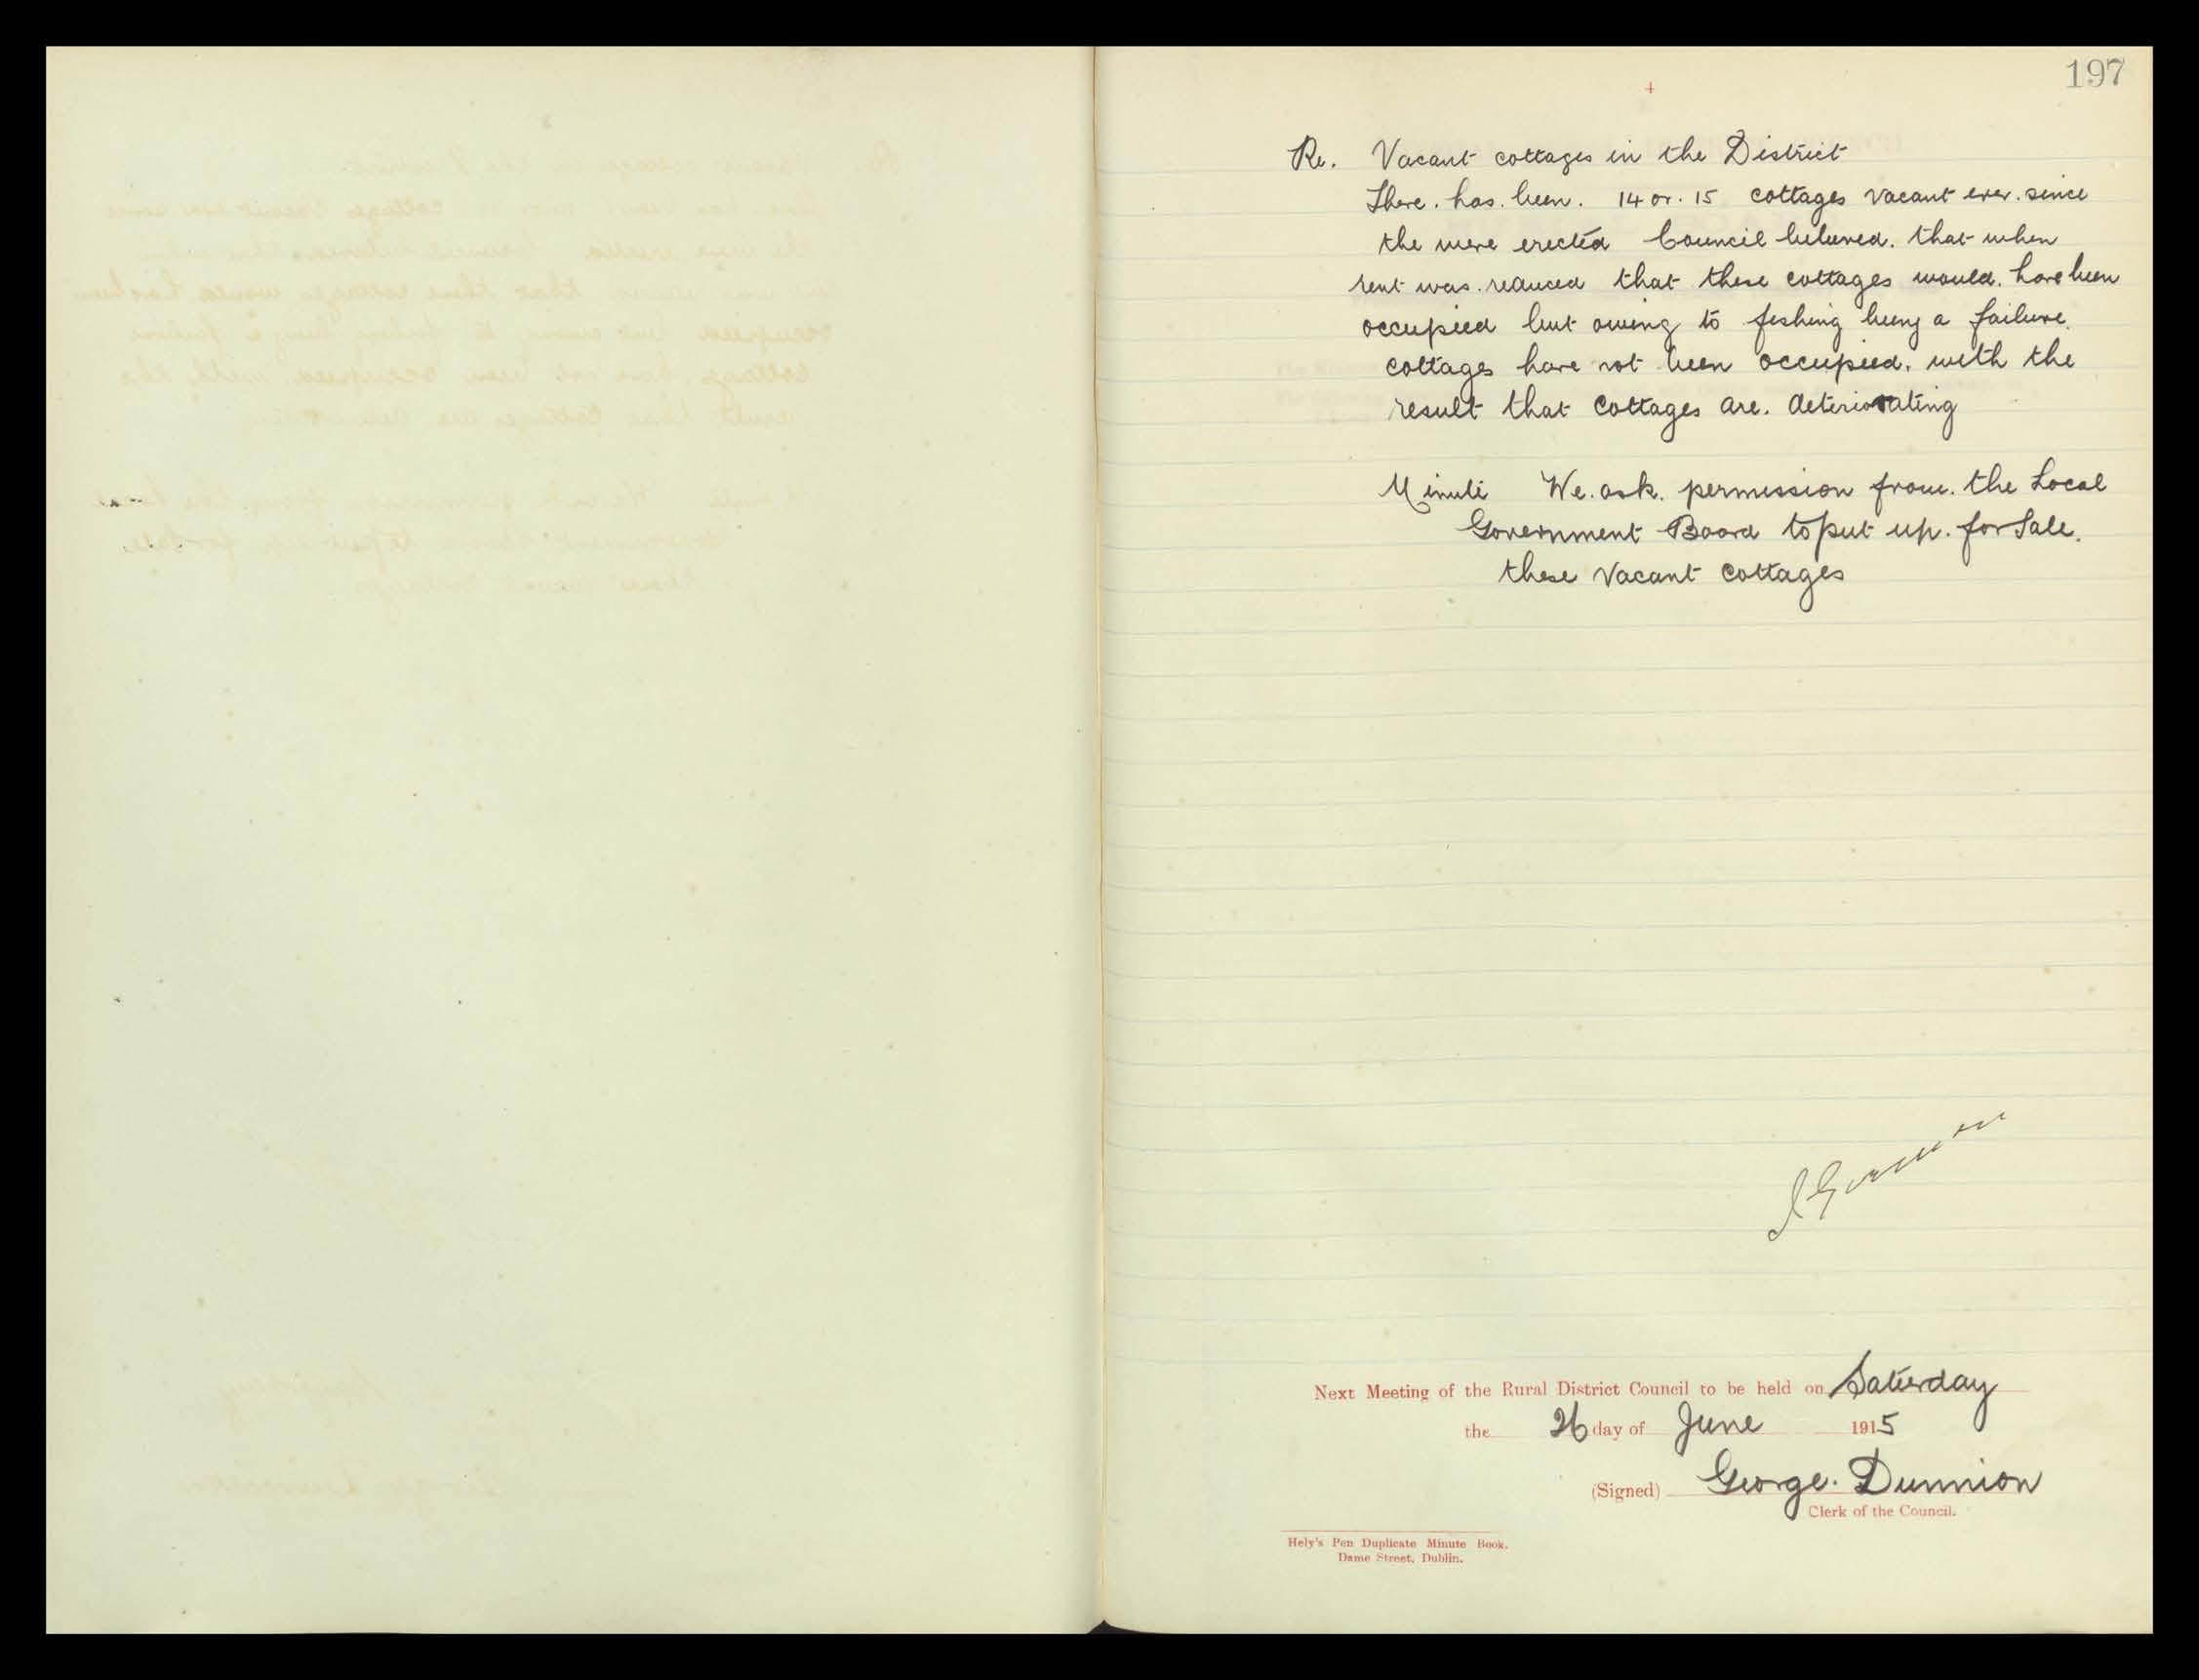 197
4
Re. Vacant cottages in the District
There. has. been. 14 or. 15 cottages vacant ever. since
the were erected Council believed. that when
rent was. reduced that these cottages would. have been
occupied but owing to fishing being a failure.
cottages have not been occupied. with the
result that cottages are. deteriorating
Minute We. ask. permission from. the Local
Government Board to put up. for Sale.
these vacant cottages
Next Meeting of the Rural District Council to be held on Saturday
the 26 day of June 1915
(Signed) George. Dunnion
Clerk of the Council.
Hely's Pen Duplicate Minute Book.
Dame Street, Dublin.